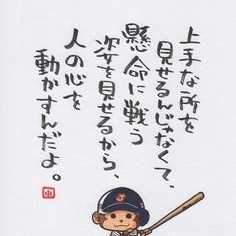 上手な所を
見せるんじゃなくて、
懸命に戦う
姿を見せるから、
人の心を
動かすんだよ。